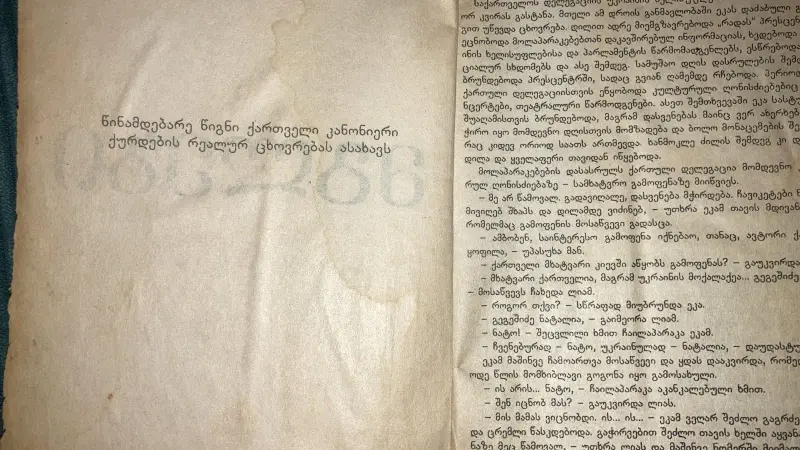 წინამდებარე წიგნი ქართველი კანონიერი
ქურდების რეალურ ცხოვრებას ასახავს
საქართველოს დელეგაციის
ორ კვირას გასტანა. მთელი ამ დროის განმავლობაში ეკას დაძაბული
გით უწევდა ცხოვრება. დილით ადრე მიემგზავრებოდა „რადას“ პრესცენ
ეცნობოდა მოლაპარაკებებთან დაკავშირებულ ინფორმაციას, ხვდებოდა
ინის ხელისუფლებისა და პარლამენტის წარმომადგენლებს, ესწრებოდა
ციალურ სხდომებს და ასე შემდეგ. სამუშაო დღის დასრულების შემდ
ბრუნდებოდა პრესცენტრში, სადაც გვიან ღამემდე რჩებოდა. პერიოდ
ქართული დელეგაციისთვის ეწყობოდა კულტურული ღონისძიებებიც
ნცერტები, თეატრალური წარმოდგენები. ასეთ შემთხვევაში ეკა სასტუ
შუაღამისთვის ბრუნდებოდა, მაგრამ დასვენებას მაინც ვერ ახერხებ
ჭირო იყო მომდევნო დღისთვის მომზადება და ბოლო მონაცემების შე
რაც კიდევ ორიოდ საათს ართმევდა. ხანმოკლე ძილის შემდეგ კი დ
დილა და ყველაფერი თავიდან იწყებოდა.
მოლაპარაკებების დასასრულს ქართული დელეგაცია მომდევნო
რულ ღონისძიებაზე – სამხატვრო გამოფენაზე მიიწვიეს.
– მე არ წამოვალ. გადავიღალე, დასვენება მჭირდება. ჩავიკეტები ნ
მივიღებ შხაპს და დილამდე ვიძინებ, – უთხრა ეკამ თავის მდივან
რომელმაც გამოფენის მოსაწვევი გადასცა.
– ამბობენ, საინტერესო გამოფენა იქნებაო, თანაც, ავტორი ქ
ყოფილა, – უპასუხა მან.
– ქართველი მხატვარი კიევში აწყობს გამოფენას? – გაუკვირდა
– მხატვარი ქართველია, მაგრამ უკრაინის მოქალაქეა... გეგეშიძე
– მოსაწვევს ჩახედა ლიამ.
– როგორ თქვი? – სწრაფად მიუბრუნდა ეკა.
– გეგეშიძე ნატალია, – გაიმეორა ლიამ.
– ნატო! – შეცვლილი ხმით ჩაილაპარაკა ეკამ.
– ჩვენებურად – ნატო, უკრაინულად – ნატალია, – დაუდასტუ
ეკამ მაშინვე ჩამოართვა მოსაწვევი და ყდას დააკვირდა, რომელ
ოდე წლის მომხიბლავი გოგონა იყო გამოსახული.
– ის არის... ნატო, – ჩაილაპარაკა აკანკალებული ხმით.
– შენ იცნობ მას? – გაუკვირდა ლიას.
– მის მამას ვიცნობდი. ის... ის... – ეკამ ვეღარ შეძლო გაგრძე
და ცრემლი წასკდებოდა. გაჭირვებით შეძლო თავის ხელში აყვანა
ნაზე მეც წამოვალ, – უთხრა ლიას და მაშინვე ნომერში